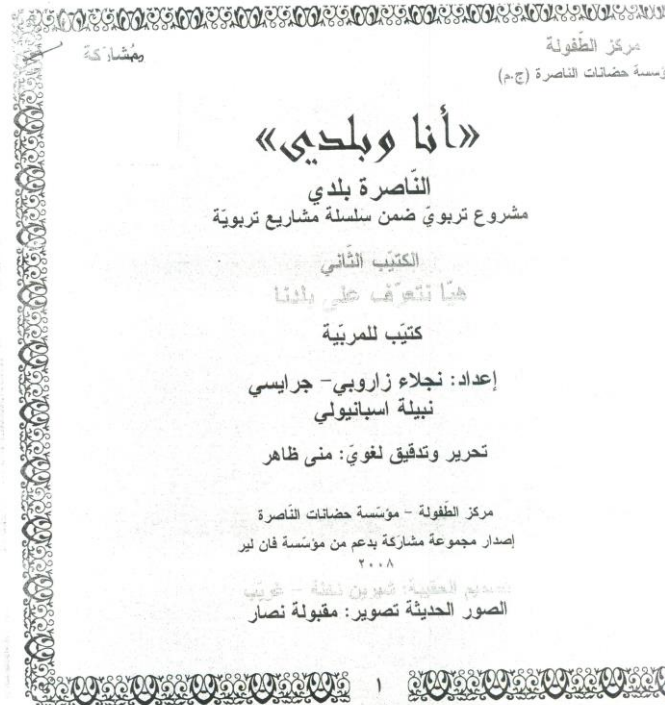 مركز الطّفولة
مؤسسة حضانات الناصرة (ج.م)
مُشاركة
«أنا وبلدي»
النّاصرة بلدي
مشروع تربويّ ضمن سلسلة مشاريع تربويّة
الكتيّب الثّاني
هيّا نتعرّف على بلدنا
كتيّب للمربّية
إعداد: نجلاء زاروبي- جرايسي
نبيلة اسبانيولي
تحرير وتدقيق لغويّ: منى ظاهر
مركز الطّفولة - مؤسّسة حضانات النّاصرة
إصدار مجموعة مشاركة بدعم من مؤسّسة فان لير
٢٠٠٨
تصميم الحقيبة: شيرين نخلة - غريّب
الصور الحديثة تصوير: مقبولة نصار
١